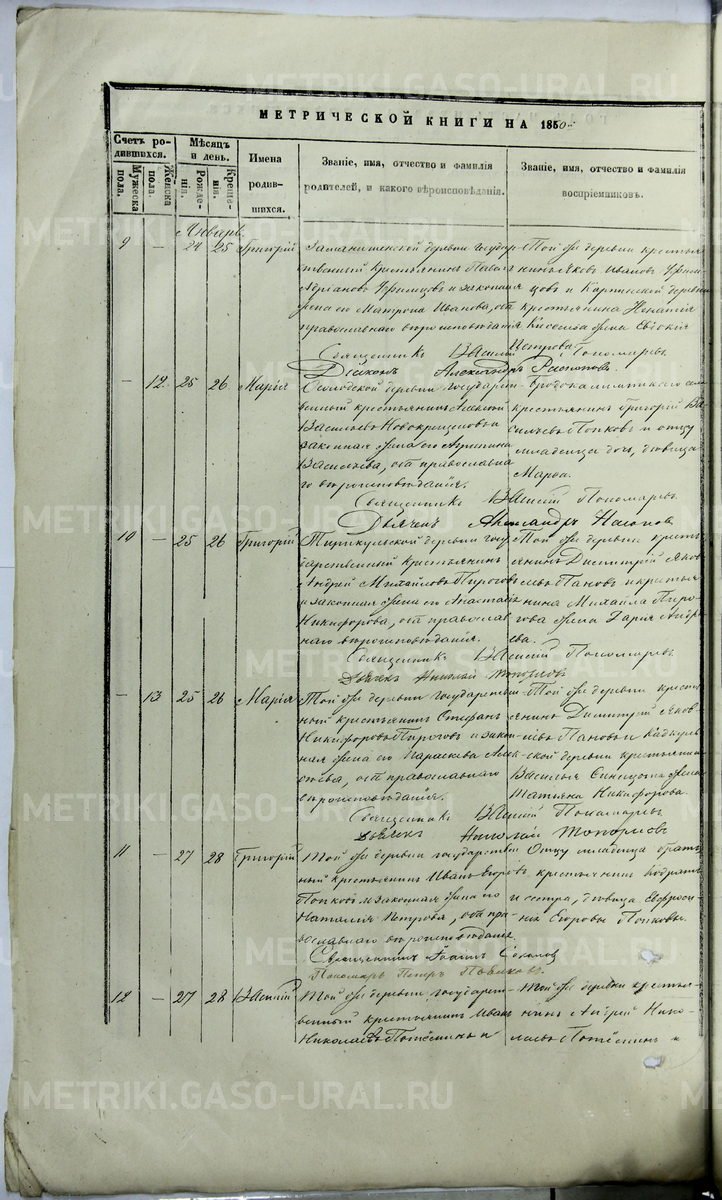 METRIKI.GASO-URAL.RU
МЕТРИЧЕСКОЙ КНИГИ НА 1850
Счетъ родившихся.
Мужеска пола.
Женска пола.
Мѣсяцъ и день.
Рожденія.
Крещенія.
Имена родившихся.
Званіе, имя, отчество и фамилія
родителей, и какого вѣроисповѣданія.
Званіе, имя, отчество и фамилія
воспріемниковъ.
Январь.
9 — 24 25 Григорій
деревни государ-
ственный крестьянинъ Павелъ
и законная
жена его Матрона Иванова, оба
православнаго вѣроисповѣданія
Той же деревни крестья-
нинъ Яковъ Ивановъ
и деревни
крестьянина Игнатія
жена Евдокія
Петрова.
Священникъ Василій Пономаревъ
Діаконъ Александръ
— 12. 25 26 Марія
деревни государст-
венный крестьянинъ Алексѣй
Васильевъ Новокрещеновъ и
законная жена его Агрипина
Васильева, оба православна-
го вѣроисповѣданія.
крестьянинъ Григорій Ва-
сильевъ Попковъ и отцу
младенца дочь, дѣвица
Марѳа.
Священникъ Василій Пономаревъ
Дьячекъ Александръ
10 — 25 26 Григорій
деревни госу-
дарственный крестьянинъ
Андрей Михайловъ Пироговъ
и законная жена его Анастасія
Никифорова, оба православ-
наго вѣроисповѣданія.
Той же деревни кресть-
янинъ Димитрій Яков-
левъ Пановъ и крестья-
нина Михаила Пиро-
гова жена Дарія Андре-
ева.
Священникъ Василій Пономаревъ
Дьячекъ Николай
— 13 25 26 Марія
Той же деревни государствен-
ный крестьянинъ Стефанъ
Никифоровъ Пироговъ и закон-
ная жена его Параскева Алек-
сѣева, оба православнаго
вѣроисповѣданія.
Той же деревни кресть-
янинъ Димитрій Яков-
левъ Пановъ и
деревни крестьянина
Василья Синицына жена
Татьяна Никифорова.
Священникъ Василій Пономаревъ
Дьячекъ Николай
11 — 27 28 Григорій
Той же деревни государствен-
ный крестьянинъ Иванъ Егоровъ
Попковъ и законная жена его
Наталія Петрова, оба пра-
вославнаго вѣроисповѣданія
Отцу младенца братъ
крестьянинъ
и сестра, дѣвица Евфроси-
нія Егоровы Попковы.
Священникъ Іоаннъ Соколовъ
Пономарь Петръ Поляковъ.
12 — 27 28 Василій
Той же деревни государст-
венный крестьянинъ Иванъ
Николаевъ Потёминъ и
Той же деревни крестья-
нинъ Андрей Нико-
лаевъ Потёминъ и